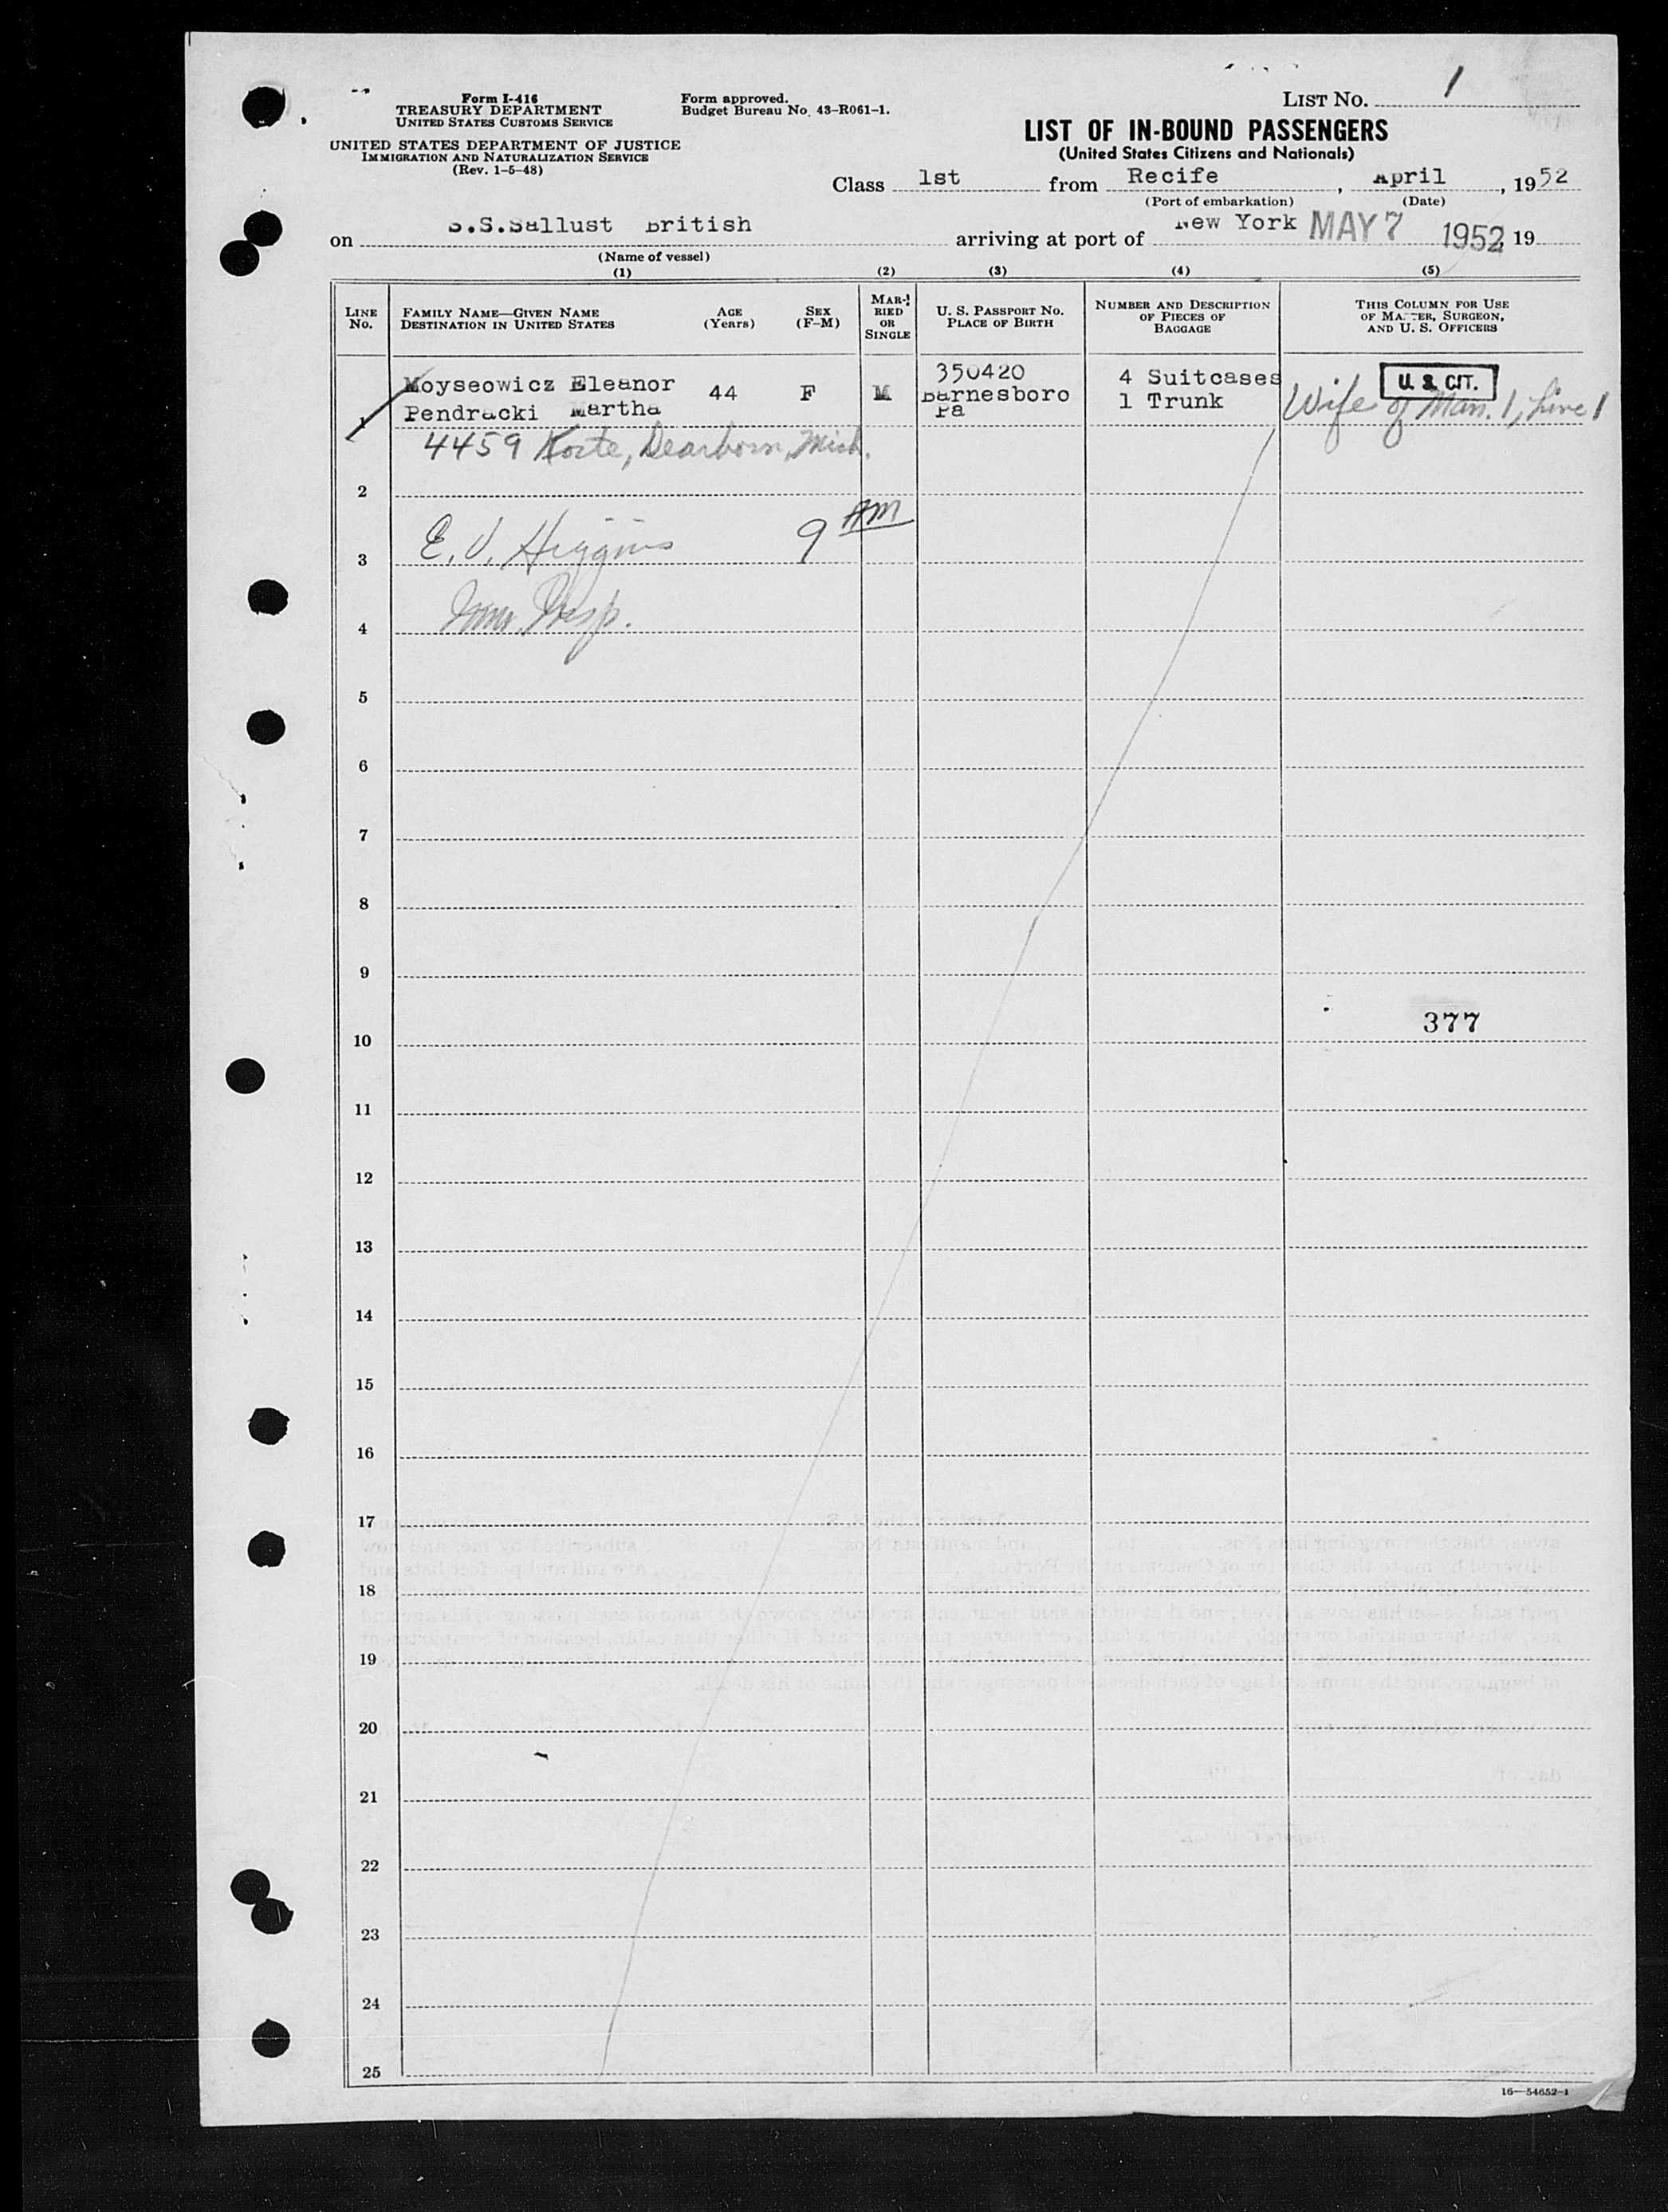 Form I-416
TREASURY DEPARTMENT
UNITED STATES CUSTOMS SERVICE
UNITED STATES DEPARTMENT OF JUSTICE
IMMIGRATION AND NATURALIZATION SERVICE
(Rev. 1-5-48)
Form approved.
Budget Bureau No. 43-R061-1.
LIST NO. 1
LIST OF IN-BOUND PASSENGERS
(United States Citizens and Nationals)
Class 1st from Recife, April, 1952
(Port of embarkation) (Date)
on S.S.Sallust British arriving at port of New York MAY 7 1952, 19
(Name of vessel)
(1) (2) (3) (4) (5)
LINE No. FAMILY NAME—GIVEN NAME DESTINATION IN UNITED STATES AGE (Years) SEX (F-M) MARRIED OR SINGLE U. S. PASSPORT NO. PLACE OF BIRTH NUMBER AND DESCRIPTION OF PIECES OF BAGGAGE THIS COLUMN FOR USE OF MASTER, SURGEON, AND U. S. OFFICERS
1 Moyseowicz Eleanor 44 F M 350420 4 Suitcases U. S. CIT.
Pendracki Martha Barnesboro Pa 1 Trunk Wife of Man. 1, Line 1
4459 Korte, Dearborn, Mich.
2
E. J. Higgins 9 AM
3
Imm. Insp.
4
5
6
7
8
9
377
10
11
12
13
14
15
16
17
18
19
20
21
22
23
24
25
16—54652-1